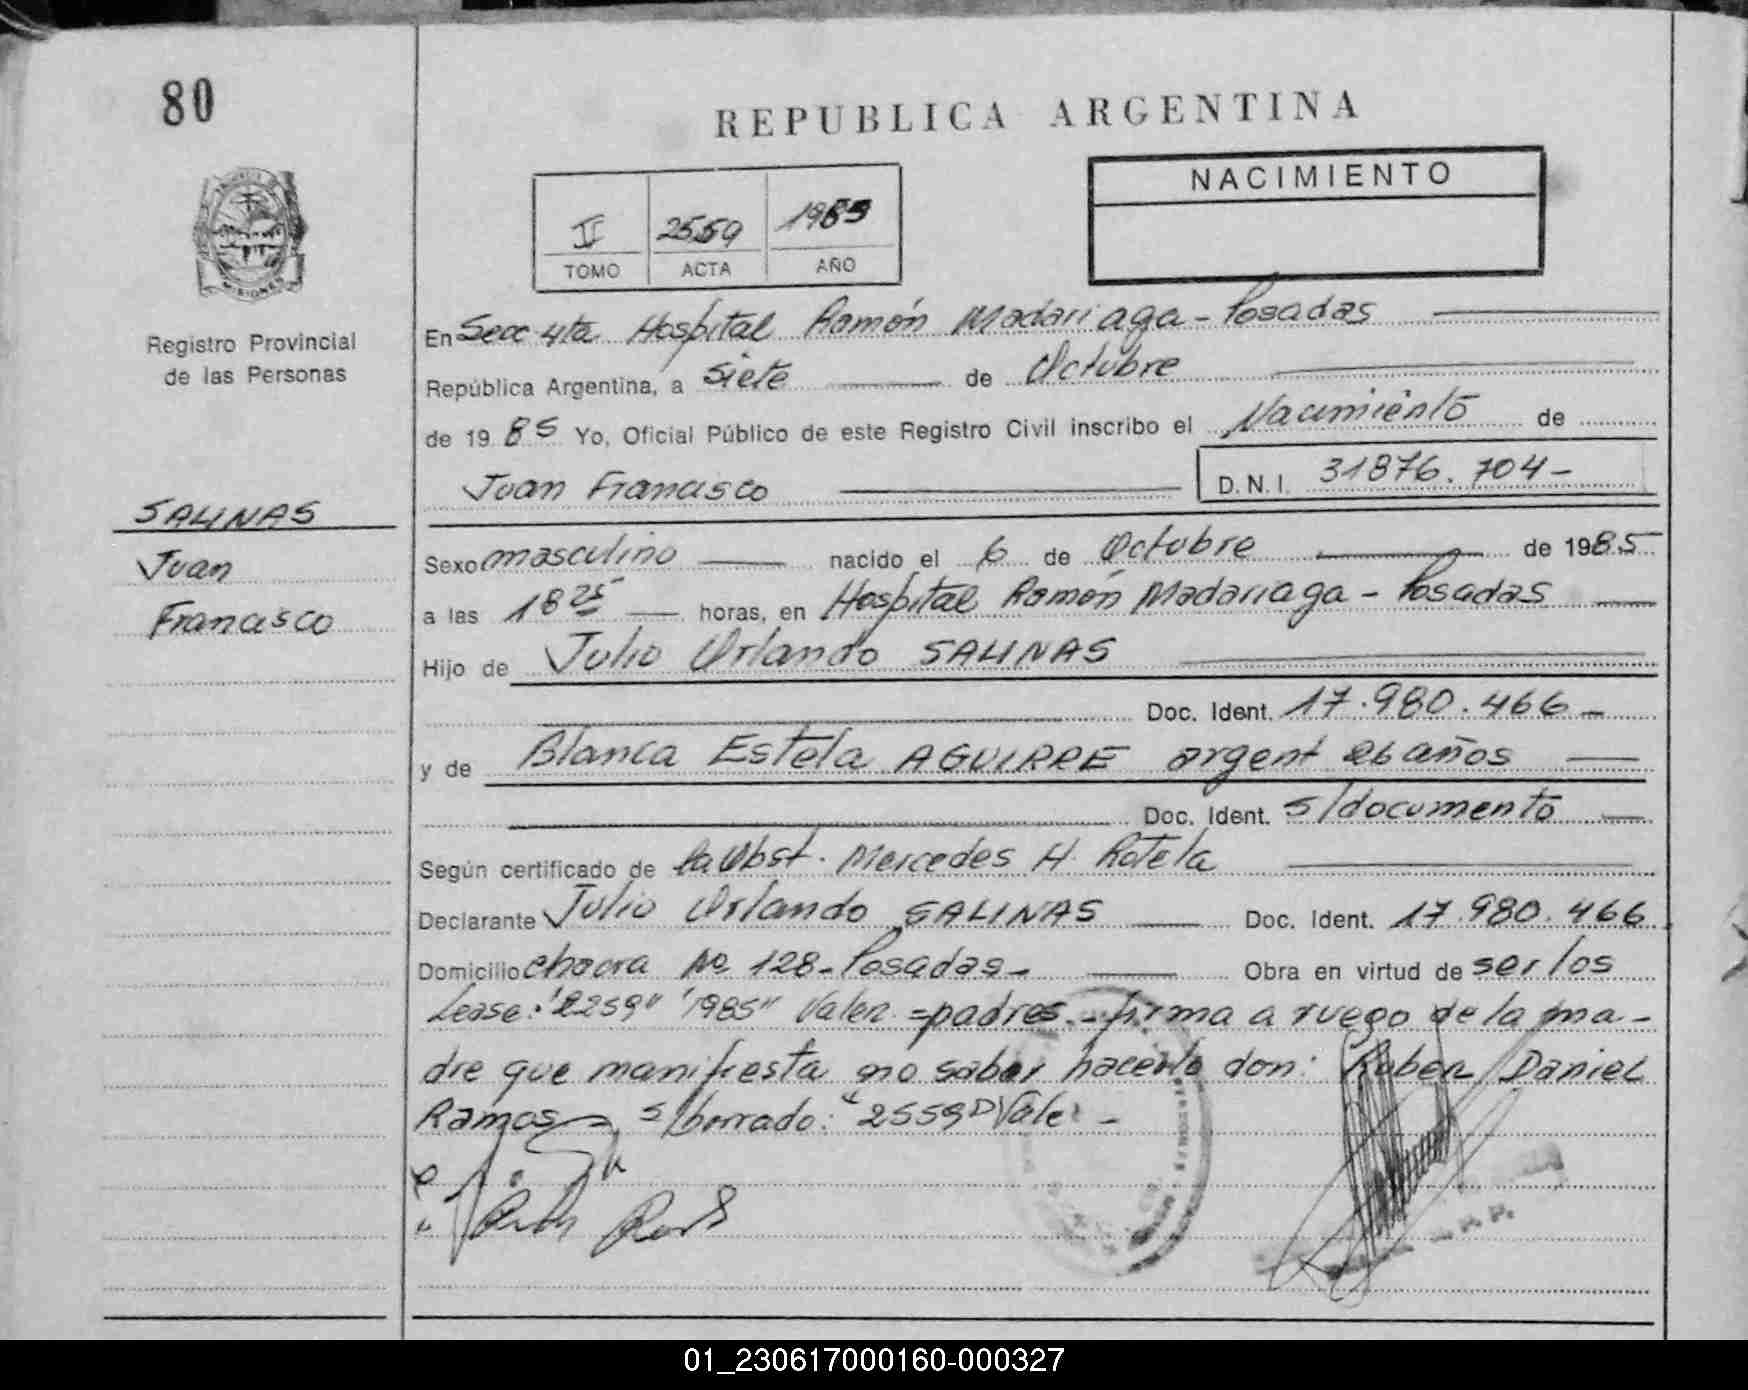 80
REPUBLICA ARGENTINA
NACIMIENTO
II 2559 1985
TOMO ACTA AÑO
MISIONES
Registro Provincial
de las Personas
SALINAS
Juan
Francisco
En Secc 4ta Hospital Ramón Madariaga - Posadas
República Argentina, a Siete de Octubre
de 19 85 Yo, Oficial Público de este Registro Civil inscribo el Nacimiento de
Juan Francisco D.N.I. 31876.704-
Sexo masculino nacido el 6 de Octubre de 1985
a las 18 25 horas, en Hospital Ramón Madariaga - Posadas
Hijo de Julio Orlando SALINAS
Doc. Ident. 17.980.466-
y de Blanca Estela AGUIRRE argent 26 años
Doc. Ident. s/documento
Según certificado de la Obst. Mercedes H. Rotela
Declarante Julio Orlando SALINAS Doc. Ident. 17.980.466
Domicilio chacra No 128-Posadas- Obra en virtud de ser los
Lease: "2259" "1985" Valen =padres.- firma a ruego de la ma-
dre que manifiesta no saber hacerlo don: Ruben Daniel
Ramos- s/borrado: "2559" Vale-
01_230617000160-000327